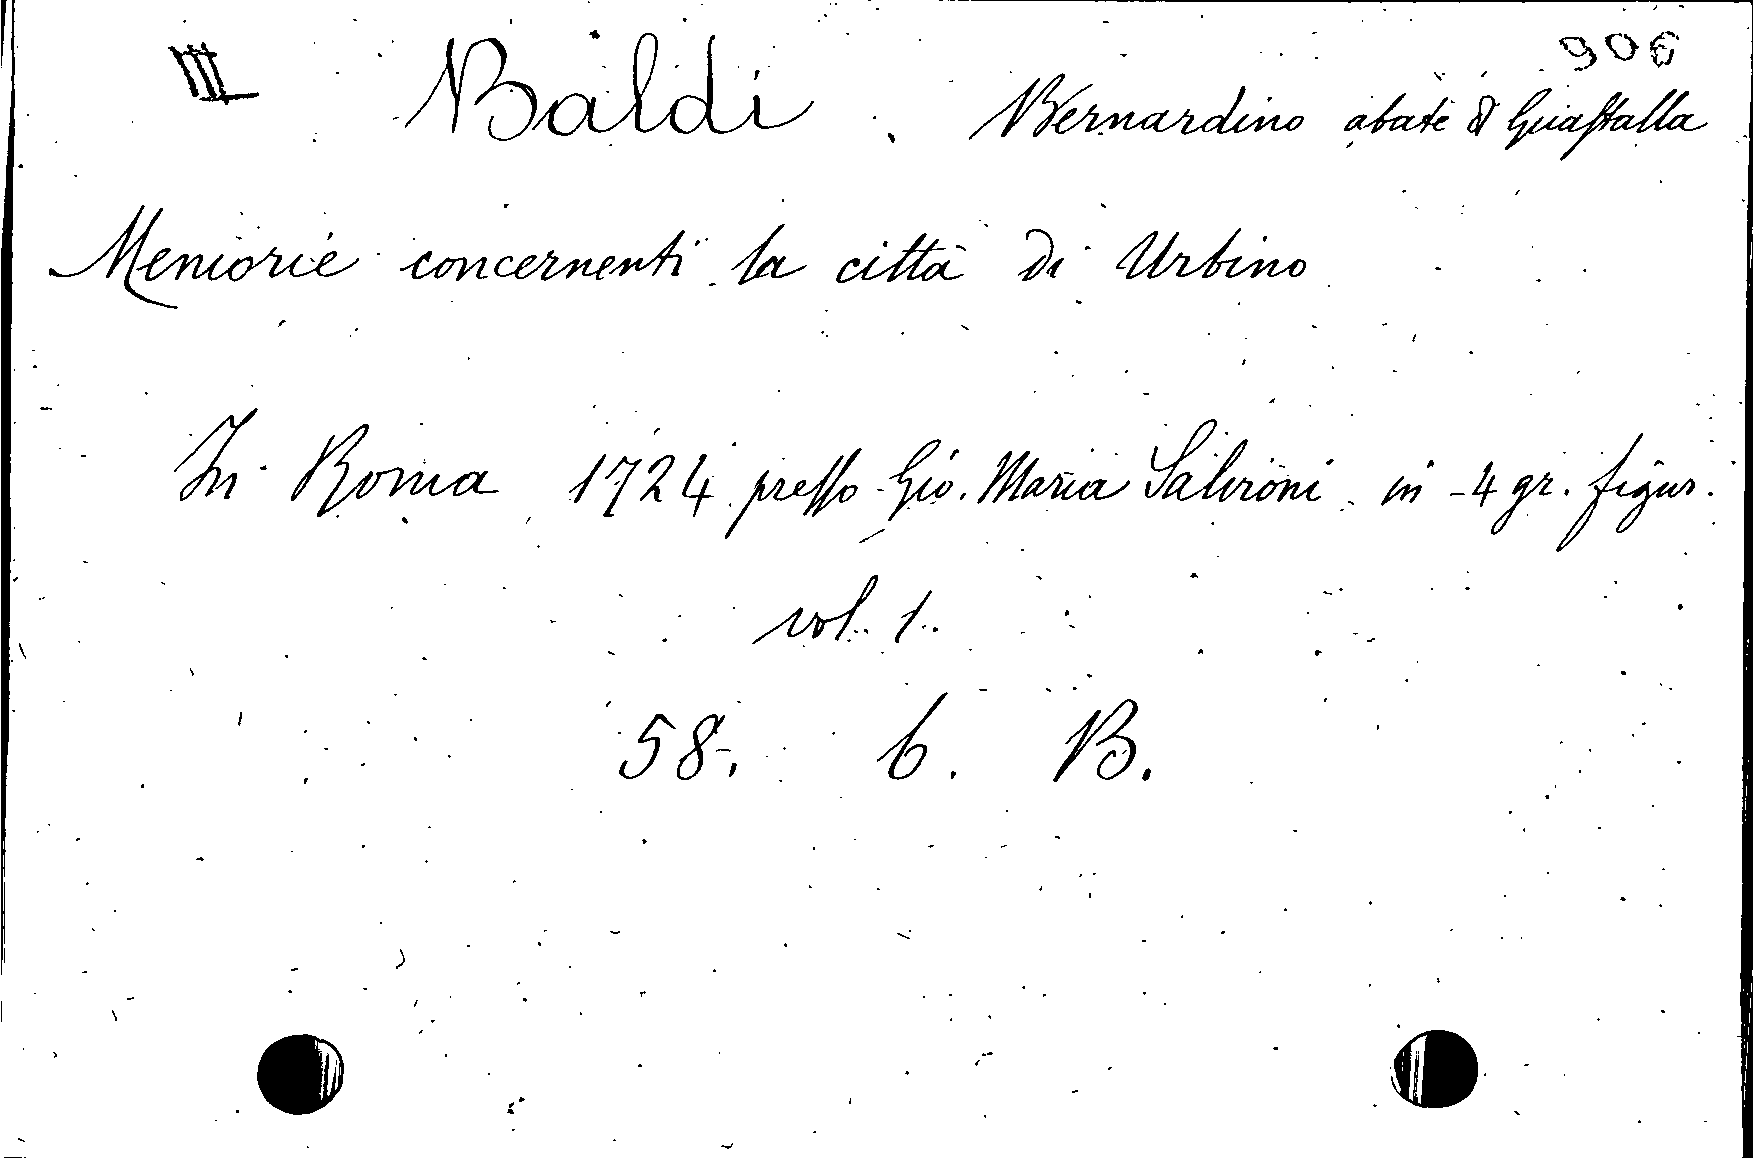 III 906
Baldi. Bernardino abate di Guastalla
Memorie concernenti la città di Urbino
In Roma 1724 presso Gio. Maria Salvioni in-4 gr. figur.
vol. 1.
58. 6. B.